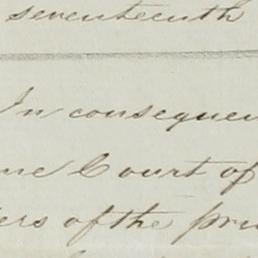 seventeenth
In consequen
me Court of
ers of the pri